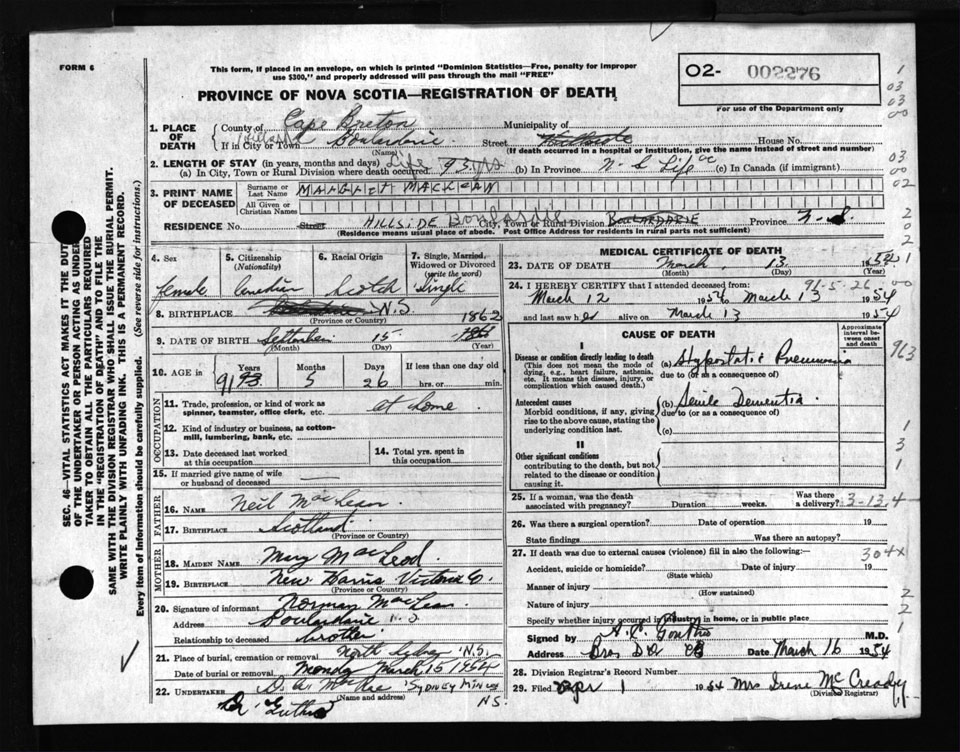 FORM 6
This form, if placed in an envelope, on which is printed "Dominion Statistics—Free, penalty for improper
use $300," and properly addressed will pass through the mail "FREE"
PROVINCE OF NOVA SCOTIA—REGISTRATION OF DEATH
O2- 002276
For use of the Department only
1. PLACE OF DEATH
County of Cape Breton Municipality of
If in City or Town Boulardarie Street House No.
(Name) (If death occurred in a hospital or institution, give the name instead of street and number)
2. LENGTH OF STAY (in years, months and days) Life 93 yrs
(a) In City, Town or Rural Division where death occurred. (b) In Province N-S Life (c) In Canada (if immigrant)
3. PRINT NAME OF DECEASED
Surname or Last Name MARGARET MACLEAN
All Given or Christian Names
RESIDENCE No. Street HILLSIDE Boulardarie City, Town or Rural Division BOULARDARIE Province N.S.
(Residence means usual place of abode. Post Office Address for residents in rural parts not sufficient)
4. Sex female
5. Citizenship (Nationality) Canadian
6. Racial Origin Scotch
7. Single, Married, Widowed or Divorced (write the word) Single
8. BIRTHPLACE N.S.
(Province or Country)
9. DATE OF BIRTH September 15 1862
(Month) (Day) (Year)
10. AGE in Years 91 93 Months 5 Days 26 If less than one day old hrs. or min.
OCCUPATION
11. Trade, profession, or kind of work as spinner, teamster, office clerk, etc. at home
12. Kind of industry or business, as cotton-mill, lumbering, bank, etc.
13. Date deceased last worked at this occupation
14. Total yrs. spent in this occupation
15. If married give name of wife or husband of deceased
FATHER
16. NAME Neil MacLean
17. BIRTHPLACE Scotland
(Province or Country)
MOTHER
18. MAIDEN NAME Mary MacLeod
19. BIRTHPLACE New Harris Victoria Co.
(Province or Country)
20. Signature of informant Norman MacLean
Address Boulardarie N.S.
Relationship to deceased brother
21. Place of burial, cremation or removal North Sydney N.S.
Date of burial or removal Monday March 15 1954
22. UNDERTAKER D. A. MacRae SYDNEY MINES
(Name and address) N.S.
MEDICAL CERTIFICATE OF DEATH
23. DATE OF DEATH March 13 1954
(Month) (Day) (Year)
24. I HEREBY CERTIFY that I attended deceased from: 91-5-26
March 12 1954 to March 13 1954
and last saw her alive on March 13 1954
CAUSE OF DEATH
Approximate interval between onset and death
I
Disease or condition directly leading to death
(This does not mean the mode of dying, e.g., heart failure, asthenia, etc. It means the disease, injury, or complication which caused death.)
(a) Hypostatic Pneumonia
due to (or as a consequence of)
Antecedent causes
Morbid conditions, if any, giving rise to the above cause, stating the underlying condition last.
(b) Senile Dementia
due to (or as a consequence of)
(c)
II
Other significant conditions
contributing to the death, but not related to the disease or condition causing it.
25. If a woman, was the death associated with pregnancy? Duration weeks. Was there a delivery? 3-13.4
26. Was there a surgical operation? Date of operation 19
State findings Was there an autopsy?
27. If death was due to external causes (violence) fill in also the following:— 304x
Accident, suicide or homicide? Date of injury 19
(State which)
Manner of injury
(How sustained)
Nature of injury
Specify whether injury occurred in industry in home, or in public place
Signed by M.D.
Address Date March 16 1954
28. Division Registrar's Record Number
29. Filed Apr 1 1954 Mrs Irene McCready
(Division Registrar)
SEC. 46—VITAL STATISTICS ACT MAKES IT THE DUTY
OF THE UNDERTAKER OR PERSON ACTING AS UNDER-
TAKER TO OBTAIN ALL THE PARTICULARS REQUIRED
IN THE "REGISTRATION OF DEATH" AND TO FILE THE
SAME WITH THE DIVISION REGISTRAR WHO SHALL ISSUE THE BURIAL PERMIT.
WRITE PLAINLY WITH UNFADING INK. THIS IS A PERMANENT RECORD.
Every item of information should be carefully supplied. (See reverse side for instructions.)
1
03
03
00
03
00
02
2
0
2
1
00
963
1
3
2
2
1